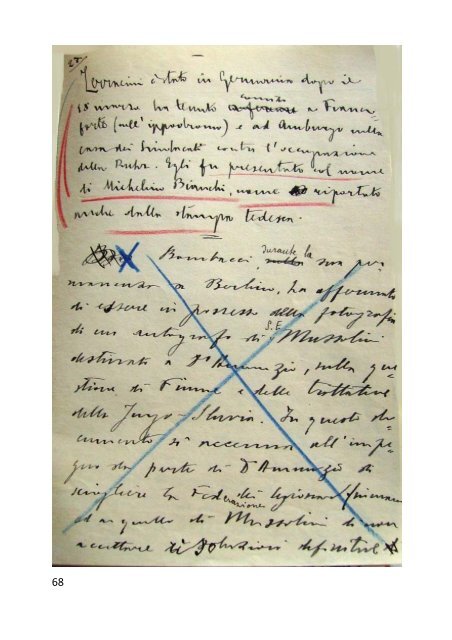 27.
è stato in Germania dopo il
18 marzo ha tenuto comizi a Franco-
forte (nell'ippodromo) e ad Amburgo nella
casa dei Sindacati contro l'occupazione
della Ruhr. Egli fu presentato col nome
di Michelino Bianchi, nome riportato
anche dalla stampa tedesca.
Bombacci, durante la sua per-
manenza a Berlino, ha affermato
di essere in possesso della fotografia
di un autografo di S.E. Mussolini
destinato a D'Annunzio, sulla que-
stione di Fiume e delle trattative
della Jugo-Slavia. In questo do-
cumento si accenna all'impe-
gno da parte di D'Annunzio di
sciogliere la Federazione dei legionari fiumani
ed a quello di Mussolini di non
accettare soluzioni definitive
68